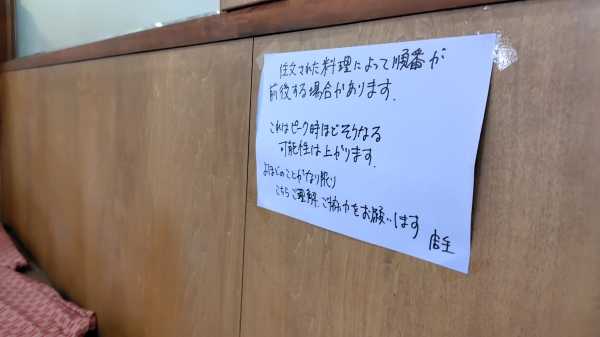 注文された料理によって順番が
前後する場合があります.
これはピーク時ほどそうなる
可能性は上がります.
よほどのことがない限り
こちらご理解、ご協力をお願いします
店主